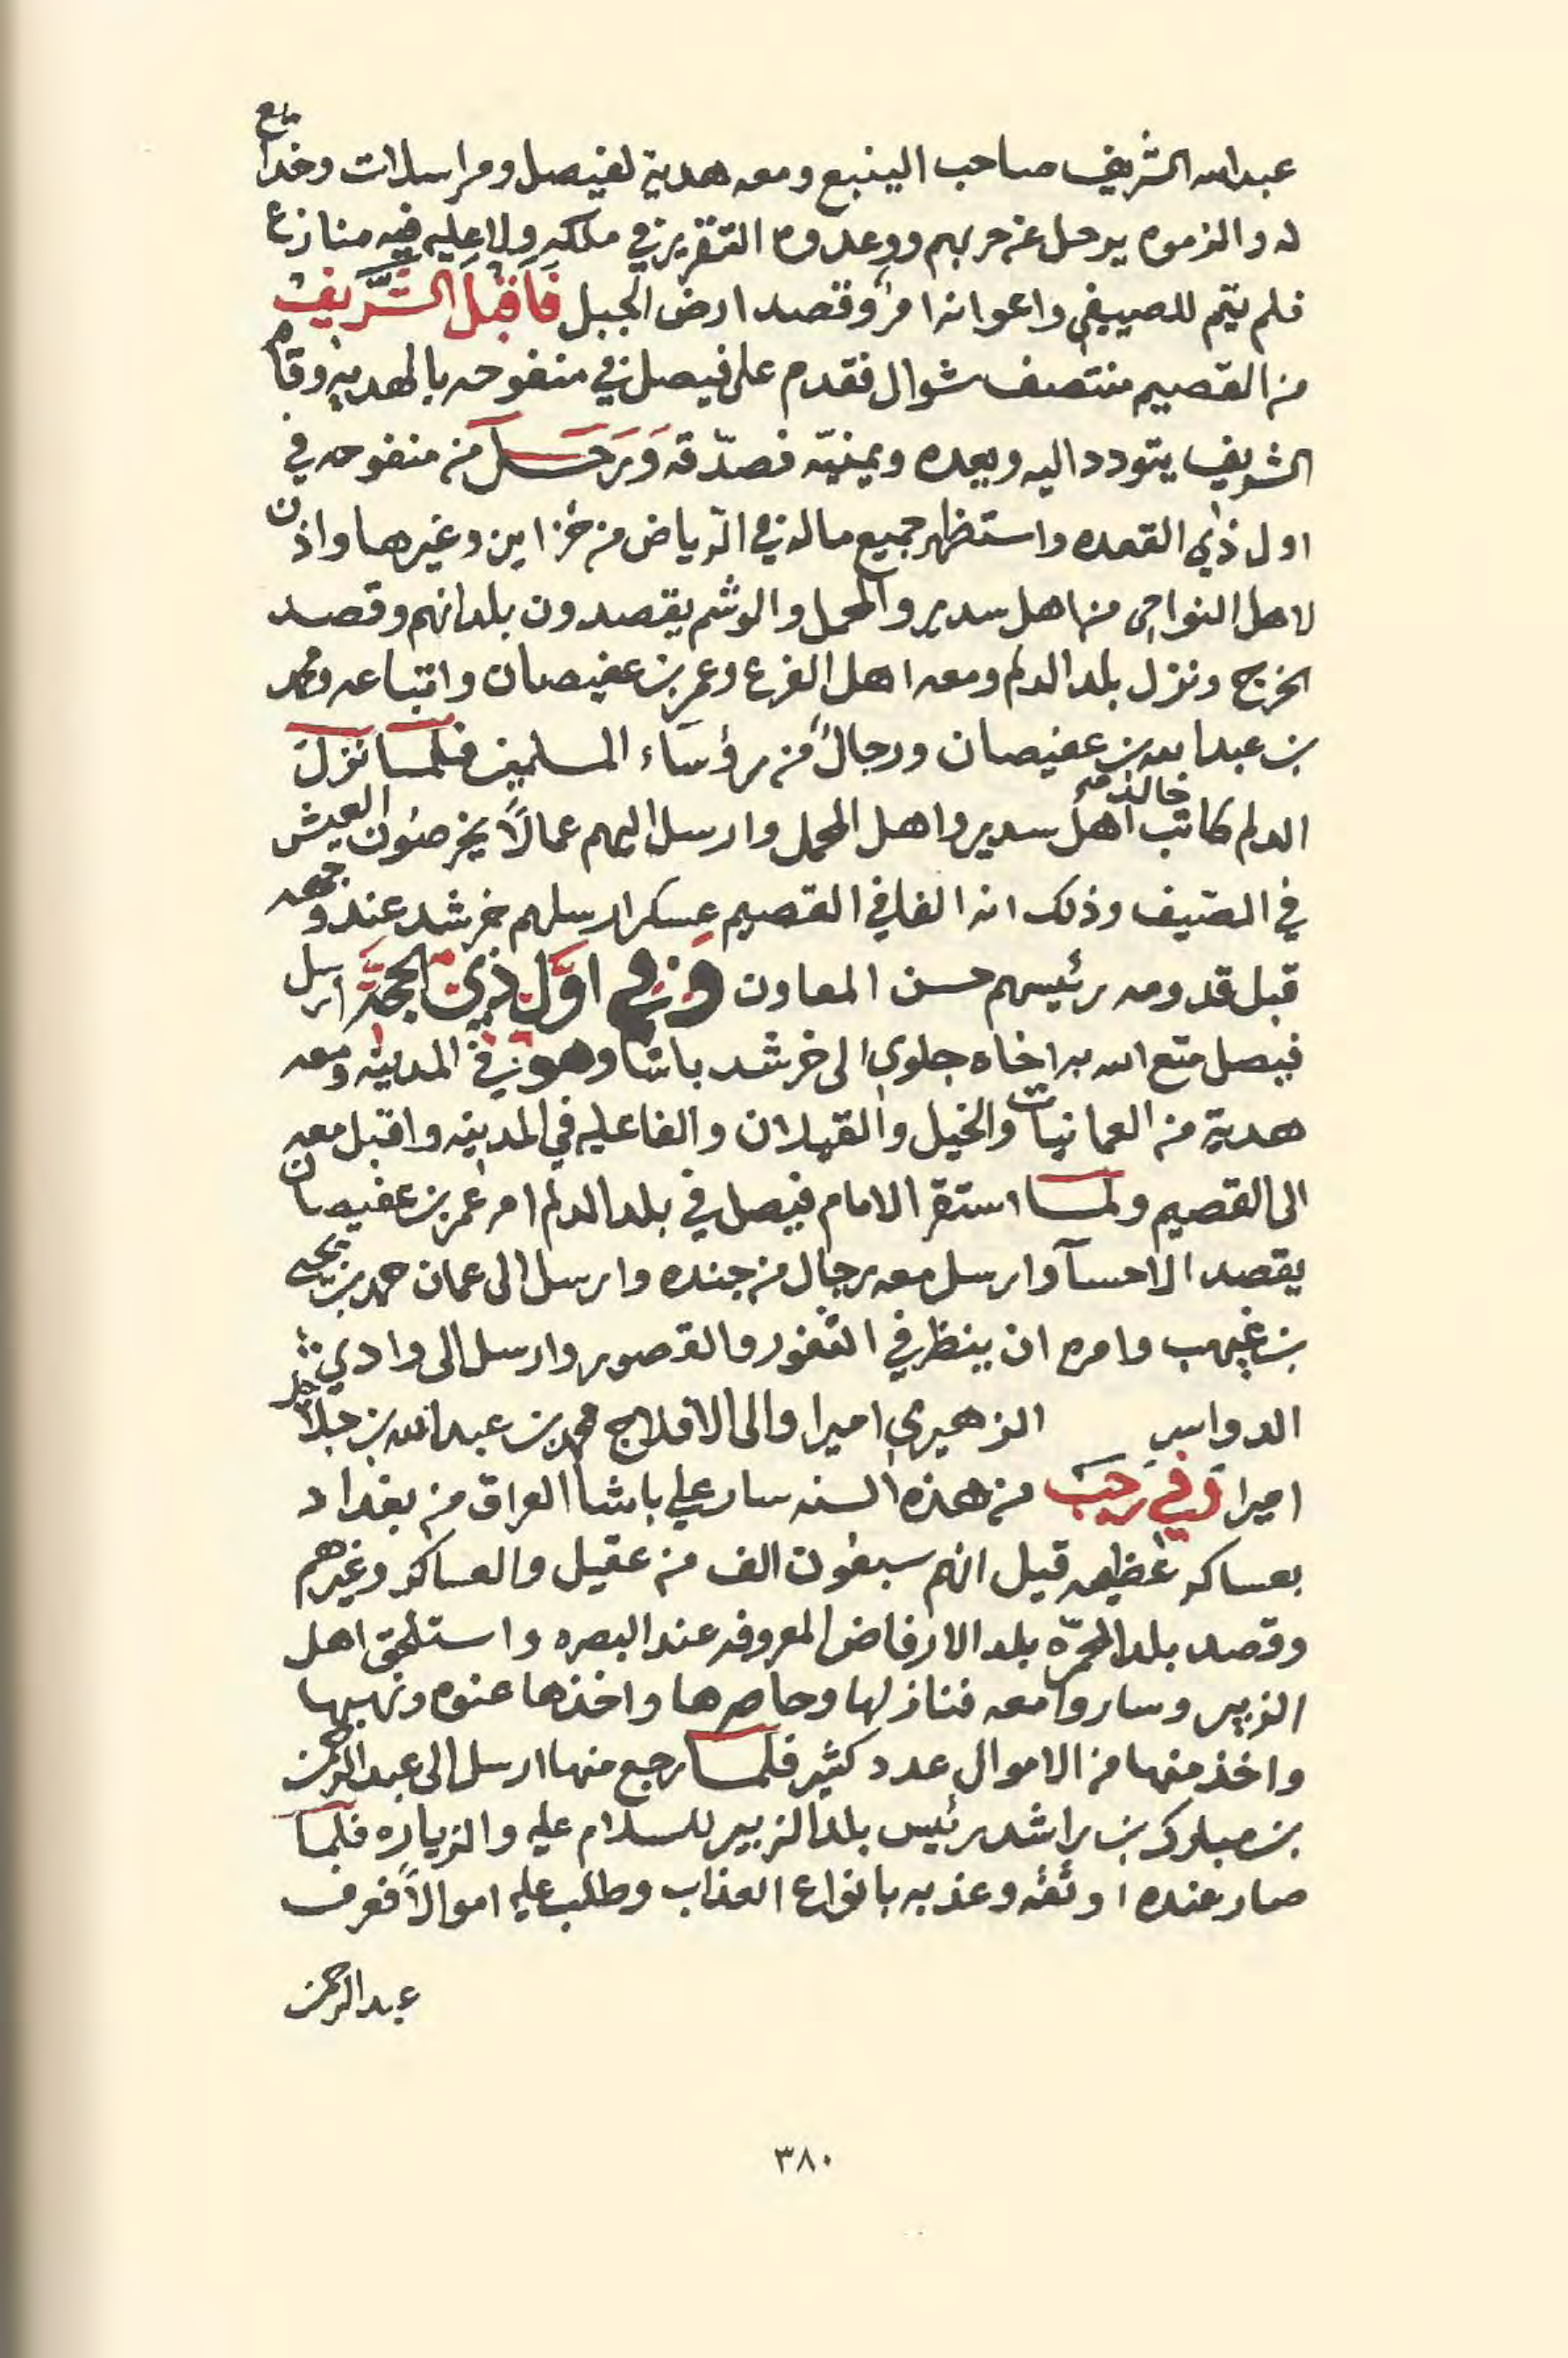 عبدالله الشريف صاحب الينبع ومعه هدية لفيصل ومراسلات وخدايع
له والزموه يرحل عن حربهم ووعدوه التقرير في ملكه ولا عليه فيه منازع
فلم يتم للصيفي واعوانه امرٌ وقصد ارض الجبل فَاَقبَلَ الشَّريفُ
من القصيم منتصف شوال فقدم على فيصل في منفوحه بالهديه وقام
الشريف يتودد اليه ويعده ويمنيّه فصدّقه وَرَحَلَ من منفوحه في
اول ذي القعده واستظهر جميع ماله في الرّياض من خزاين وغيرها واذن
لاهل النواحي من اهل سدير والمحمل والوشم يقصدون بلدانهم وقصد
الخرج ونزل بلد الدلم ومعه اهل الفرع وعمر بن عفيصان واتباعه ومحمد
بن عبدالله بن عفيصان ورجالٌ من رؤسَاء المسلمين فلمّا نَزَلَ
الدلم كاتب اهل سدير واهل المحمل وارسل اليهم عمالاً يخرصُون العيش
في الصّيف وذلك انه الفا في القصيم عسكر ارسلهم خرشد عنده
قبل قدومه رئيسهم حسن المعاون وَفي اوَّل ذِي الحجَّة ارسل
فيصل متع الله به اخاه جلوي الى خرشد باشا وهو في المدينه ومعه
هدية من العمانيات والخيل والقيلان والفا عليه في المدينه واقبل معه
الى القصيم ولمّا استقر الامام فيصل في بلد الدلم امر عمر بن عفيصان
يقصد الاحسآ وارسل معه رجال من جنده وارسل الى عمان حمد بن يحيى
بن غيهب وامره ان ينظر في الثغور والقصور وارسل الى وادي
الدواسر الزهيري اميرا والى الافلاج محمد بن عبدالله بن جلاجل
اميرا وَفي رَجَبَ من هذه السنه سار علي باشا العراق من بغداد
بعساكر عظيمه قيل انهم سبعون الف من عقيل والعساكر وغيرهم
وقصد بلد المحمّره بلد الارفاض المعروفه عند البصره واستلحق اهل
الزبير وساروا معه فنازلها وحاصرها واخذها عنوه ونهبها
واخذ منها من الاموال عدد كثير فلمّا رجع منها ارسل الى عبدالرحمن
بن مبارك بن راشد رئيس بلد الزبير للسلام عليه والزياره فلمّا
صار عنده اوثقه وعذبه بانواع العذاب وطلب عليه اموالاً فعرف
عبدالرحمن
٣٨٠